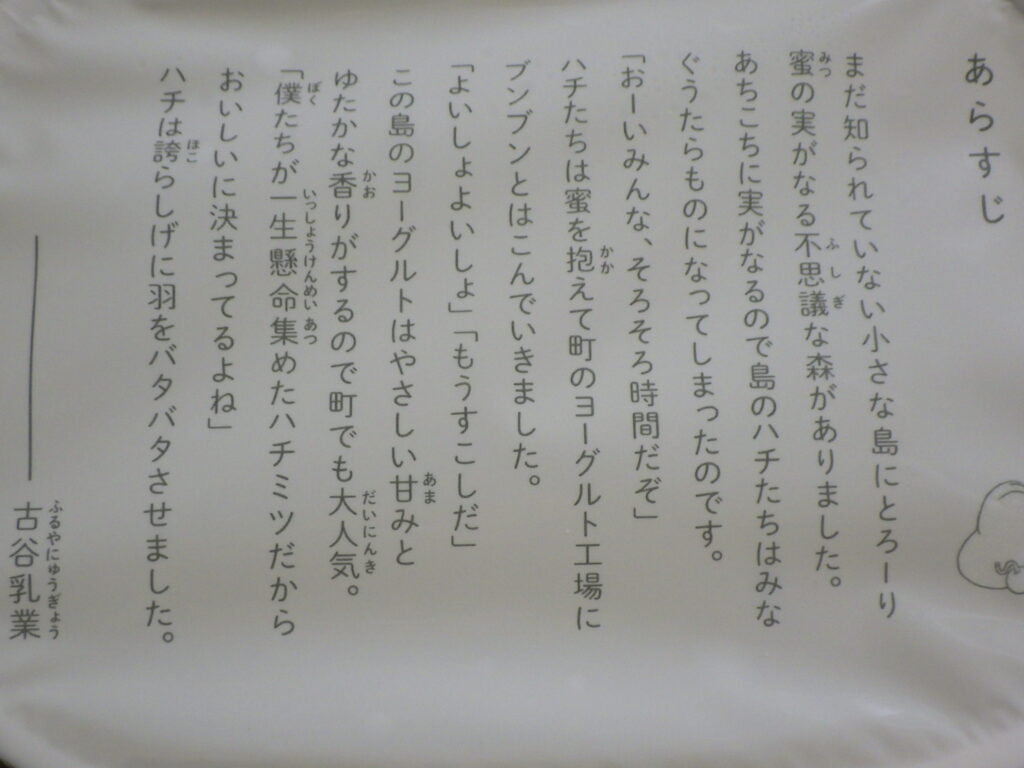 あらすじ
まだ知られていない小さな島にとろーり
蜜の実がなる不思議な森がありました。
あちこちに実がなるので島のハチたちはみな
ぐうたらものになってしまったのです。
「おーいみんな、そろそろ時間だぞ」
ハチたちは蜜を抱えて町のヨーグルト工場に
ブンブンとはこんでいきました。
「よいしょよいしょ」「もうすこしだ」
この島のヨーグルトはやさしい甘みと
ゆたかな香りがするので町でも大人気。
「僕たちが一生懸命集めたハチミツだから
おいしいに決まってるよね」
ハチは誇らしげに羽をバタバタさせました。
古谷乳業